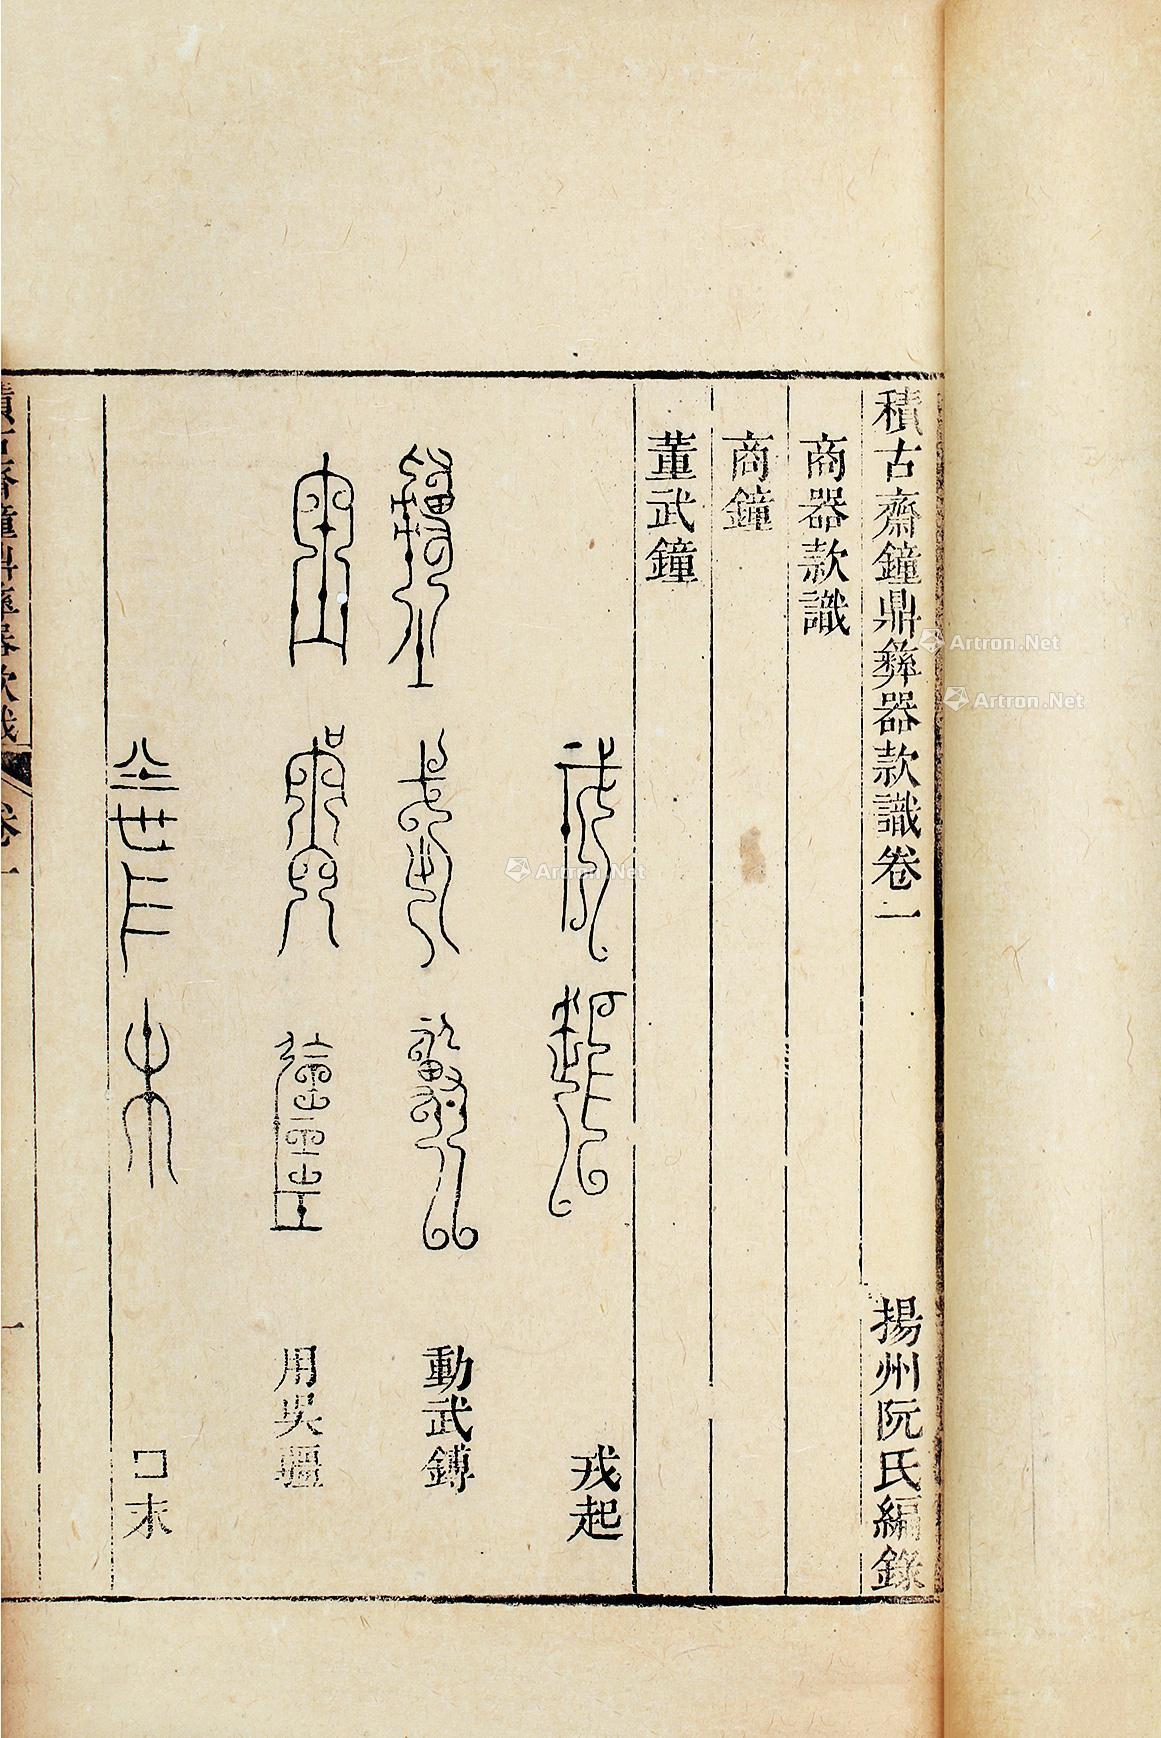 積古齋鐘鼎彝器款識卷一
揚州阮氏編錄
商器款識
商鐘
董武鐘
戎起
動武鎛
用吳疆
口末
積古齋鐘鼎彝器款識
卷一
一
Artron.Net
Artron.Net
Artron.Net